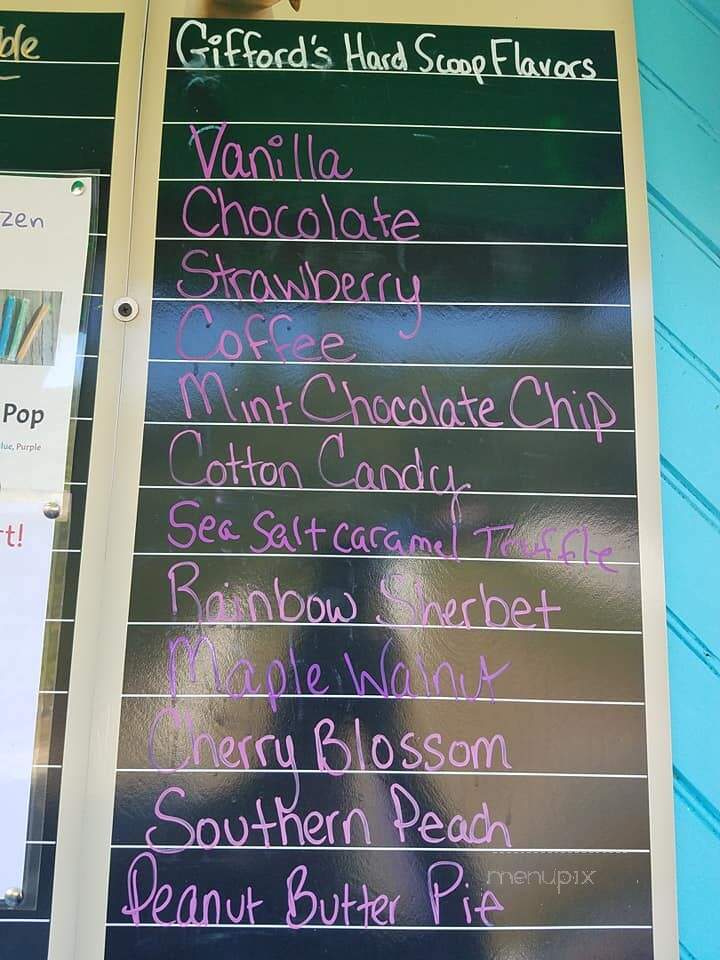 ble
Gifford's Hard Scoop Flavors
Vanilla
Chocolate
Strawberry
Coffee
Mint Chocolate Chip
Cotton Candy
Sea Salt caramel Truffle
Rainbow Sherbet
Maple Walnut
Cherry Blossom
Southern Peach
Peanut Butter Pie
zen
Pop
lue, Purple
rt!
menupix